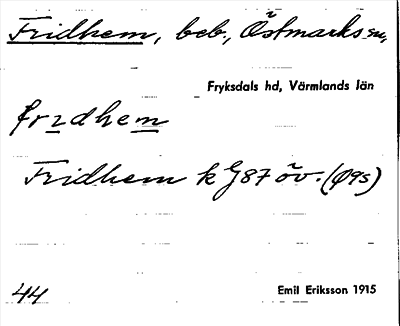 Fridhem, beb., Östmarks sn,
Fryksdals hd, Värmlands län
frıdhem
Fridhem k G87 öv. (Ø9s)
44
Emil Eriksson 1915